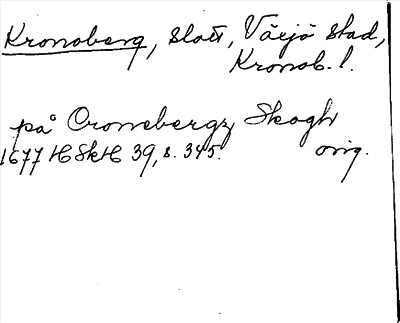 Kronoberg, slott, Växjö stad,
Kronob. l.
på Cronebergz Skogh
1677 HSkH 39, s. 345. orig.